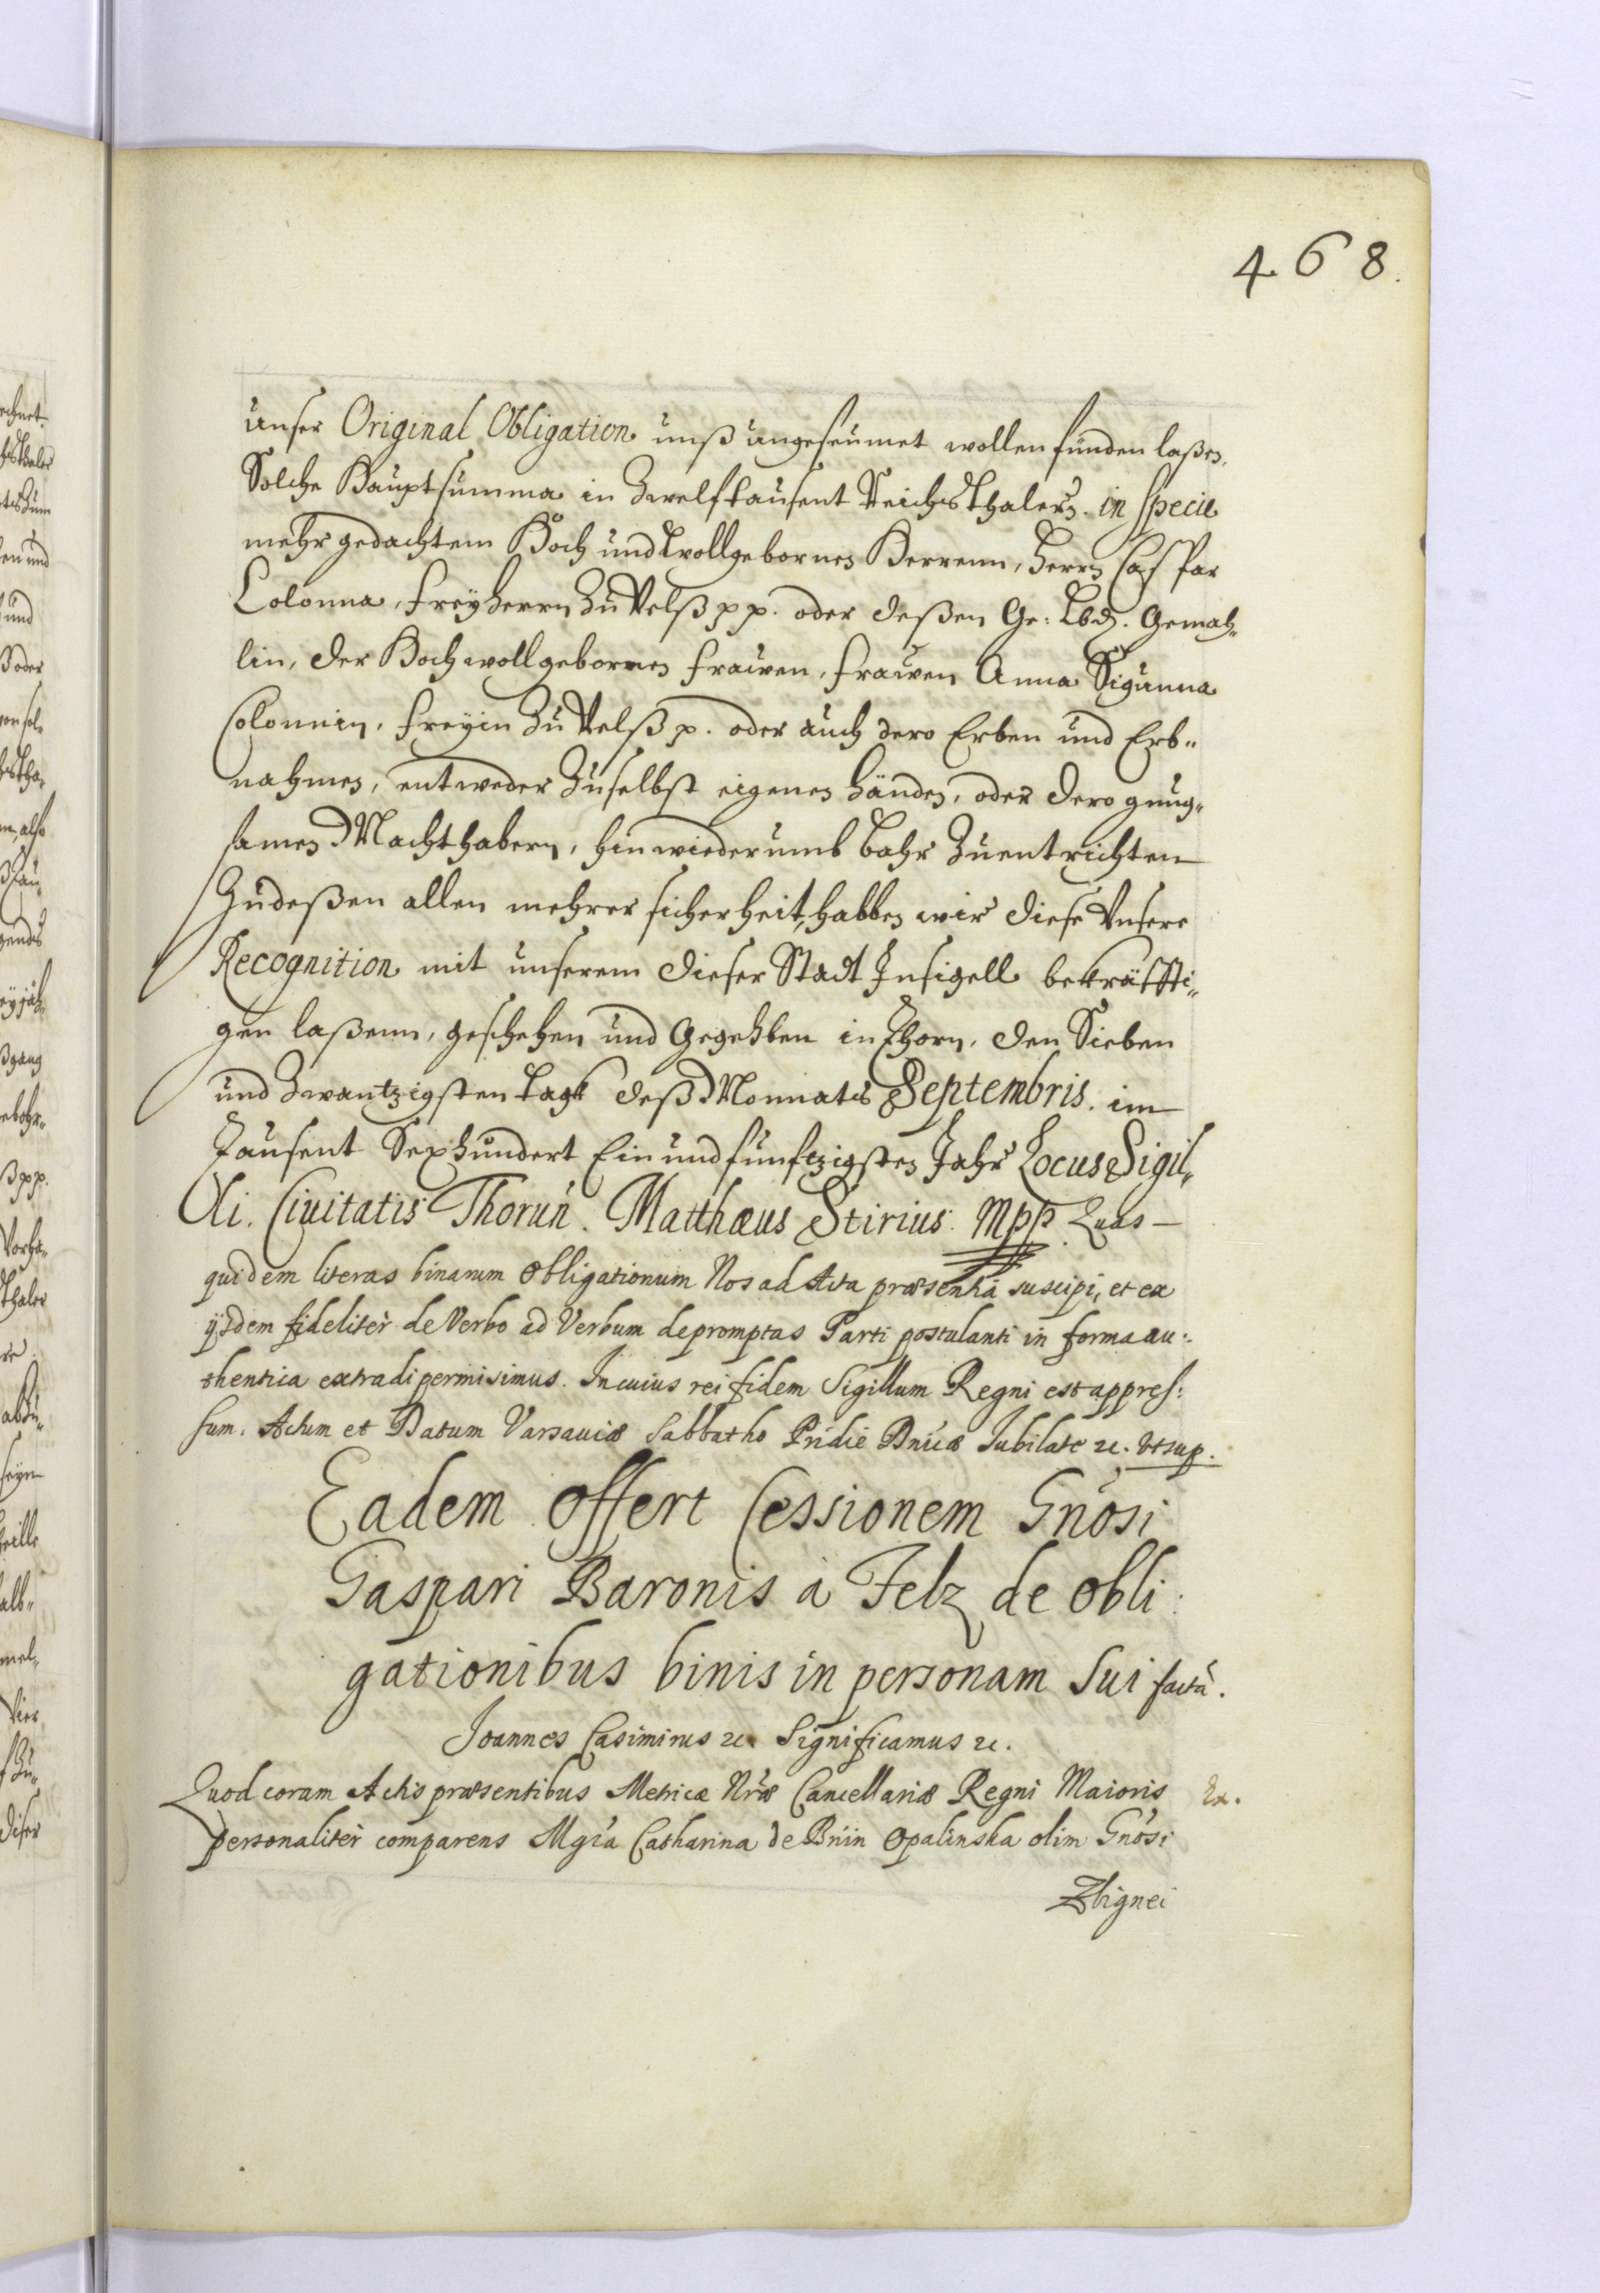 468.
unser Original Obligation unß ungeseumet wollen finden laßen,
Solche Hauptsumma in Zwelf tausent Reichsthalern. in specie
mehr gedachtem Hoch und wollgebornen Herrenn, Herrn Caspar
Colonna, Freyherrn zu Velß pp. oder deßen Ge: Lbd. Gemah-
lin, der Hochwollgebornen Frawen, Frawen Anna Sigunna
Colonnin, Freyin zu Velß p. oder auch dero Erben und Erb-
nahmen, entweder zu selbst eigenen händen, oder dero gnug-
samen Machthabern, hinwiederumb bahr zuentrichten
Zu deßen allen mehrer sicherheit, habben wir diese Unsere
Recognition mit unserem dieser Stadt Insigell bekräffti-
gen laßenn, geschehen und Gegehben in Thorn, den Sieben
und Zwantzigsten tagk deß Monnats Septembris. im
Tausent Sexhundert Ein und funftzigsten Jahr Locus Sigil-
li. Ciuitatis Thoruń. Matthæus Stirius. Mpp. Quas
quidem literas binarum Obligationum Nos ad Acta præsentia suscipi, et ex
ijsdem fideliter de Verbo ad Verbum depromptas Parti postulanti in forma au-
thentica extradi permisimus. In cuius rei fidem Sigillum Regni est appres-
sum. Actum et Datum Varsauiæ Sabbatho Pridie Dnicæ Jubilate etc. Ut sup.
Eadem offert Cessionem Gnosi
Gaspari Baronis à Felz de obli
gationibus binis in personam sui factā.
Joannes Casimirus etc. Significamus etc.
Quod coram Actis præsentibus Metricæ Nræ Cancellariæ Regni Maioris Ex.
personaliter comparens Mgfa Catharina de Bnin Opalinska olim Gnosi
Zbignei